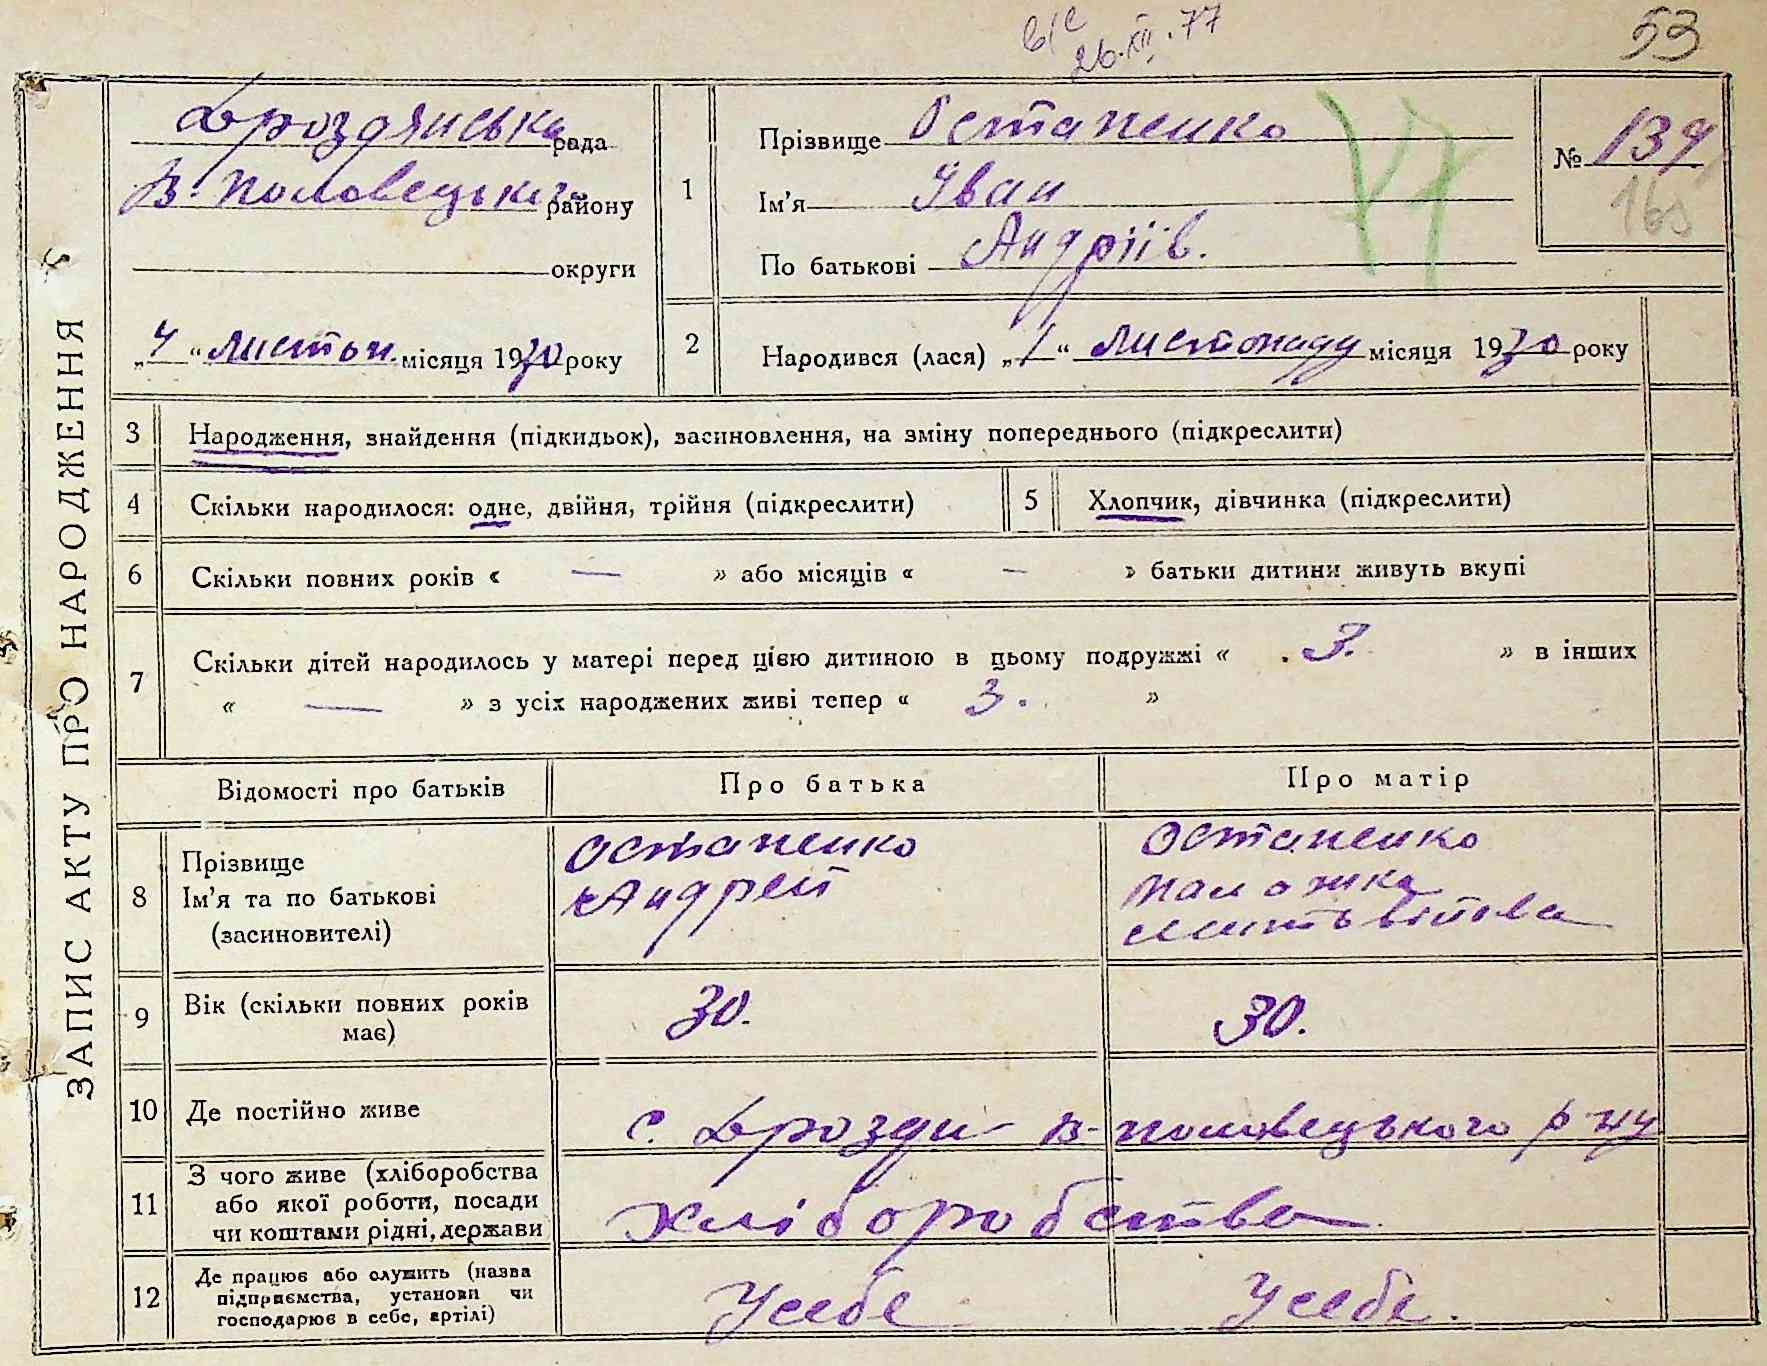 26.XII.77
53
ЗАПИС АКТУ ПРО НАРОДЖЕННЯ
Дроздянська рада
В. Половецьк. району
округи
„4“ листоп. місяця 1930 року
1
Прізвище Остапенко
Ім'я Іван
По батькові Андріїв.
№ 139
160
2
Народився (лася) „1“ Листопаду місяця 1930 року
3 Народження, знайдення (підкидьок), засиновлення, на зміну попереднього (підкреслити)
4 Скільки народилося: одне, двійня, трійня (підкреслити)
5 Хлопчик, дівчинка (підкреслити)
6 Скільки повних років « — » або місяців « — » батьки дитини живуть вкупі
7 Скільки дітей народилось у матері перед цією дитиною в цьому подружжі « 3. » в інших
« — » з усіх народжених живі тепер « 3. »
Відомості про батьків Про батька Про матір
8 Прізвище
Ім'я та по батькові
(засиновителі)
Остапенко
Андрей
Остапенко
9 Вік (скільки повних років
має)
30.
30.
10 Де постійно живе с. Дрозди В-Половецького р-ну
11 З чого живе (хліборобства
або якої роботи, посади
чи коштами рідні, держави
Хліборобства
12 Де працює або служить (назва
підприємства, установи чи
господарює в себе, артілі)
У себе
У себе.